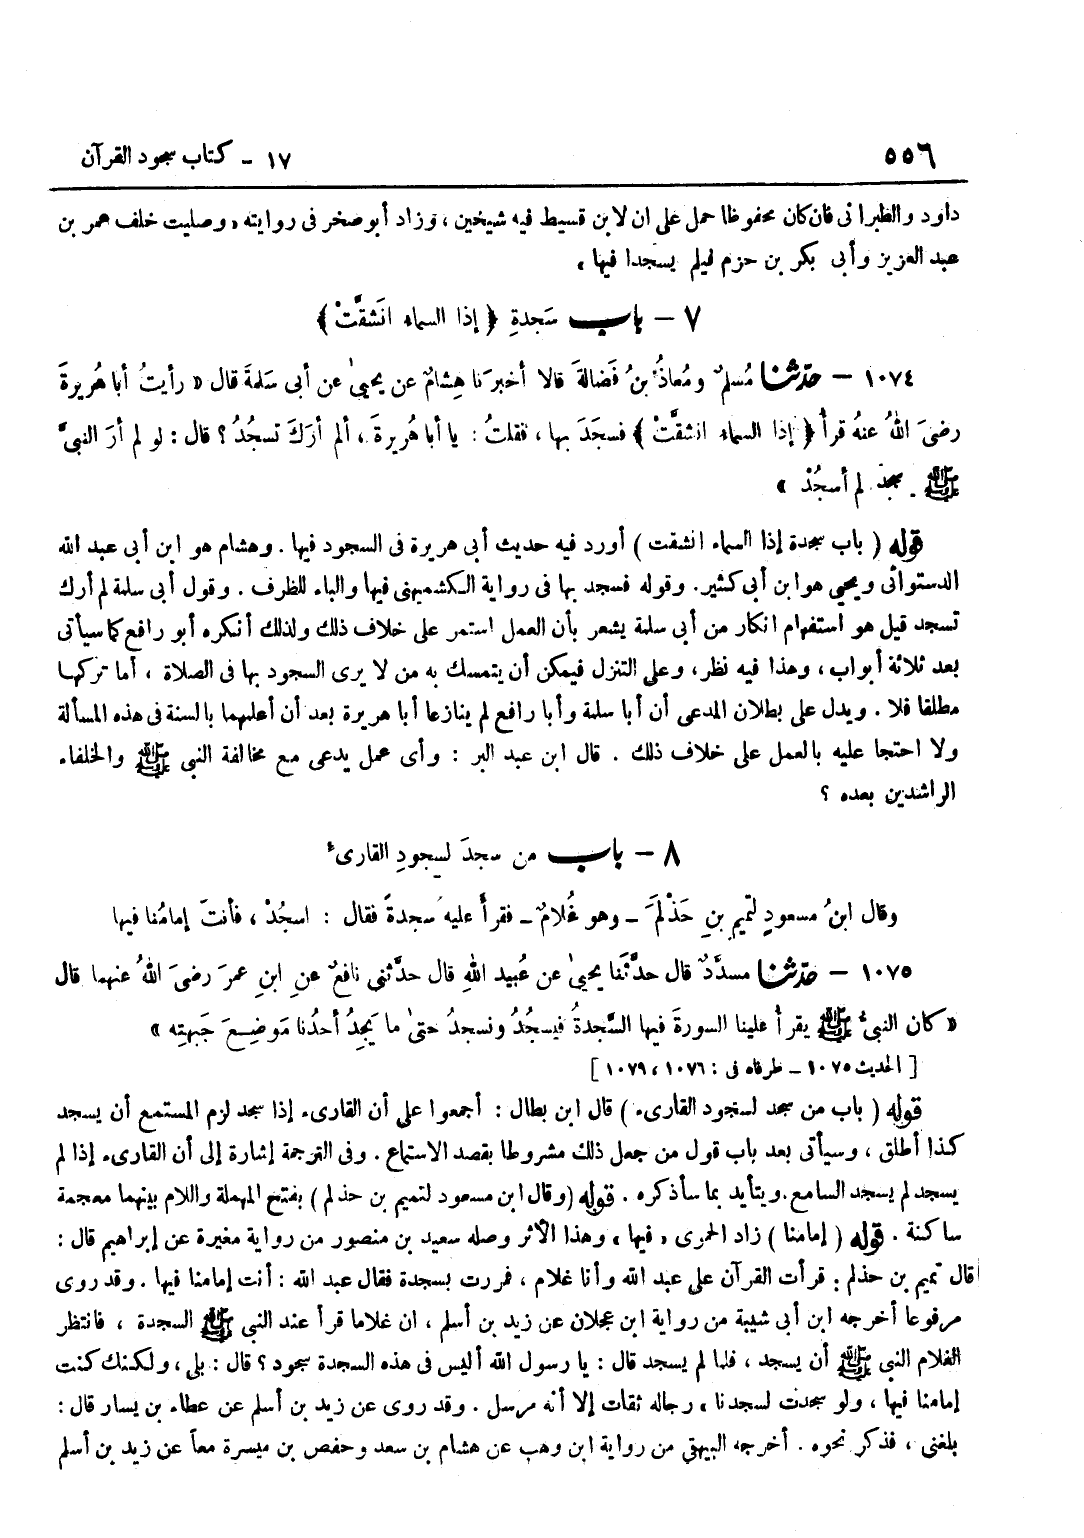 ٥٥٦
١٧ - كتاب سجود القرآن
داود والطبرانى فان كان محفوظا حمل على ان لابن قسيط فيه شيخين ، وزاد أبو صخر فى روايته « وصليت خلف عمر بن
عبد العزيز وأبى بكر بن حزم فلم يسجدا فيها »
٧ - باب سَجدةِ ﴿ إذا السماء انْشقَّتْ ﴾
١٠٧٤ - حدّثنا مُسلمٌ ومُعاذُ بنُ فَضالةَ قالا أخبرَنا هِشامٌ عن يحيىٰ عن أبى سَلمةَ قال « رأيتُ أبا هُريرةَ
رضىَ اللهُ عنهُ قرأ ﴿ إذا السماء انشقَّتْ ﴾ فسجَدَ بها ، فقلتُ : يا أبا هُريرةَ ، ألم أرَكَ تسجُدُ ؟ قال : لو لم أرَ النبىَّ
ﷺ سجد لم أسجُدْ »
قوله ( باب سجدة إذا السماء انشقت ) أورد فيه حديث أبى هريرة فى السجود فيها . وهشام هو ابن أبى عبد الله
الدستوائى ويحيى هو ابن أبى كثير . وقوله فسجد بها فى رواية الكشميهنى فيها والباء للظرف . وقول أبى سلمة لم أرك
تسجد قيل هو استفهام انكار من أبى سلمة يشعر بأن العمل استمر على خلاف ذلك ولذلك أنكره أبو رافع كما سيأتى
بعد ثلاثة أبواب ، وهذا فيه نظر ، وعلى التنزل فيمكن أن يتمسك به من لا يرى السجود بها فى الصلاة ، أما تركها
مطلقا فلا . ويدل على بطلان المدعى أن أبا سلمة وأبا رافع لم ينازعا أبا هريرة بعد أن أعلمهما بالسنة فى هذه المسألة
ولا احتجا عليه بالعمل على خلاف ذلك . قال ابن عبد البر : وأى عمل يدعى مع مخالفة النبى ﷺ والخلفاء
الراشدين بعده ؟
٨ - باب من سجدَ لسجودِ القارىء
وقال ابنُ مسعودٍ لتميمِ بنِ حَذْلَمَ - وهو غُلامٌ - فقرأ عليه سجدةً فقال : اسجُدْ ، فأنتَ إمامُنا فيها
١٠٧٥ - حدّثنا مسدَّدٌ قال حدَّثَنا يحيىٰ عن عُبيد اللهِ قال حدَّثنى نافعٌ عنِ ابنِ عمرَ رضىَ اللهُ عنهما قال
« كان النبىُّ ﷺ يقرأُ علينا السورةَ فيها السَّجدةُ فيسجُدُ ونسجدُ حتىٰ ما يَجِدُ أحدُنا مَوضِعَ جَبهتِه »
[ الحديث ١٠٧٥ - طرفاه فى : ١٠٧٦ ، ١٠٧٩ ]
قوله ( باب من سجد لسجود القارىء ) قال ابن بطال : أجمعوا على أن القارىء إذا سجد لزم المستمع أن يسجد
كذا أطلق ، وسيأتى بعد باب قول من جعل ذلك مشروطا بقصد الاستماع . وفى الترجمة إشارة إلى أن القارىء إذا لم
يسجد لم يسجد السامع . ويتأيد بما سأذكره . قوله ( وقال ابن مسعود لتميم بن حذلم ) بفتح المهملة واللام بينهما معجمة
ساكنة . قوله ( إمامنا ) زاد الحموى « فيها » وهذا الأثر وصله سعيد بن منصور من رواية مغيرة عن إبراهيم قال :
قال تميم بن حذلم : قرأت القرآن على عبد الله وأنا غلام ، فمررت بسجدة فقال عبد الله : أنت إمامنا فيها . وقد روى
مرفوعا أخرجه ابن أبى شيبة من رواية ابن عجلان عن زيد بن أسلم ، ان غلاما قرأ عند النبى ﷺ السجدة ، فانتظر
الغلام النبى ﷺ أن يسجد ، فلما لم يسجد قال : يا رسول الله أليس فى هذه السجدة سجود ؟ قال : بلى ، ولكنك كنت
إمامنا فيها ، ولو سجدت لسجدنا » رجاله ثقات إلا أنه مرسل . وقد روى عن زيد بن أسلم عن عطاء بن يسار قال :
بلغنى ، فذكر نحوه . أخرجه البيهقى من رواية ابن وهب عن هشام بن سعد وحفص بن ميسرة معاً عن زيد بن أسلم